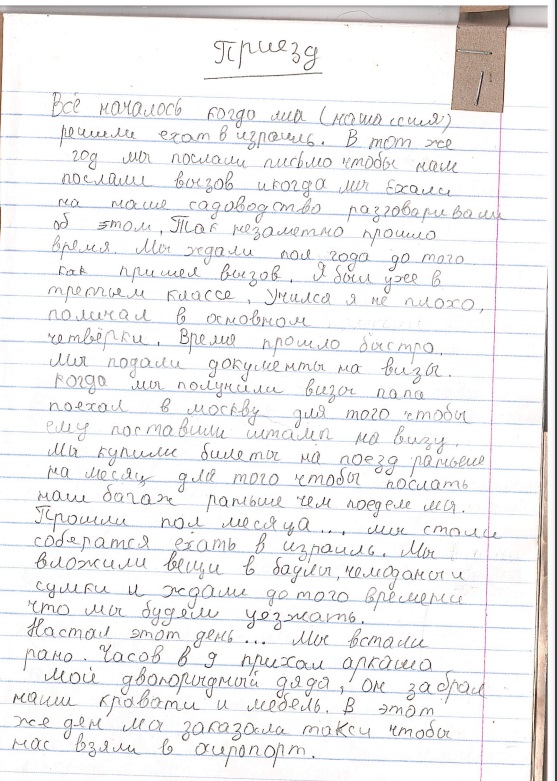 Приезд
Всё началось когдо мы (наша ссия)
решили ехат в израиль. В тот же
год мы послали письмо чтобы нам
послали вызов икогда мы ехали
на наше садоводство разговаривали
об этом. Так незаметно прошло
время. Мы ждали пол года до того
как пришел вызов. Я был уже в
третьем классе, Учился я не плохо,
полинал в основном
четвёрки. Время прошло быстро.
Мы подали документы на визы.
когда мы полунили визы папа
поехал в москву для того чтобы
ему поставили штамп на визу.
Мы купили билеты на поезд раньше
на месяц для того чтобы послать
наш багаж раньше чем поедем мы.
Прошли пол месяца... мы стали
собератся ехать в израиль. Мы
вложили вещи в баулы, чемоданы и
сумки и ждали до того времени
что мы будем уезжать.
Настал этот день... Мы встали
рано. Часов в 9 прихал аркаша
мой двоюридный дядя, он забрал
наши кровати и мебель. В этот
же ден мы заказала такси чтобы
нас взяли в аиропорт.